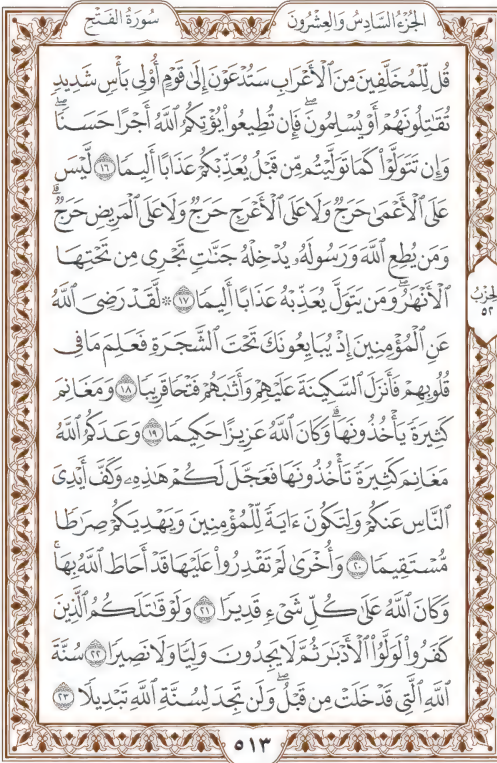 الجُزْءُ السَّادِسُ وَالعِشْرُونَ سُورَةُ الفَتْحِ
قُل لِّلْمُخَلَّفِينَ مِنَ ٱلْأَعْرَابِ سَتُدْعَوْنَ إِلَىٰ قَوْمٍ أُو۟لِى بَأْسٍ شَدِيدٍ
تُقَـٰتِلُونَهُمْ أَوْ يُسْلِمُونَ ۖ فَإِن تُطِيعُوا۟ يُؤْتِكُمُ ٱللَّهُ أَجْرًا حَسَنًا ۖ
وَإِن تَتَوَلَّوْا۟ كَمَا تَوَلَّيْتُم مِّن قَبْلُ يُعَذِّبْكُمْ عَذَابًا أَلِيمًا ١٦ لَّيْسَ
عَلَى ٱلْأَعْمَىٰ حَرَجٌ وَلَا عَلَى ٱلْأَعْرَجِ حَرَجٌ وَلَا عَلَى ٱلْمَرِيضِ حَرَجٌ ۗ
وَمَن يُطِعِ ٱللَّهَ وَرَسُولَهُۥ يُدْخِلْهُ جَنَّـٰتٍ تَجْرِى مِن تَحْتِهَا
ٱلْأَنْهَـٰرُ ۖ وَمَن يَتَوَلَّ يُعَذِّبْهُ عَذَابًا أَلِيمًا ١٧ ۞ لَّقَدْ رَضِىَ ٱللَّهُ
الحِزْبُ
٥٢
عَنِ ٱلْمُؤْمِنِينَ إِذْ يُبَايِعُونَكَ تَحْتَ ٱلشَّجَرَةِ فَعَلِمَ مَا فِى
قُلُوبِهِمْ فَأَنزَلَ ٱلسَّكِينَةَ عَلَيْهِمْ وَأَثَـٰبَهُمْ فَتْحًا قَرِيبًا ١٨ وَمَغَانِمَ
كَثِيرَةً يَأْخُذُونَهَا ۗ وَكَانَ ٱللَّهُ عَزِيزًا حَكِيمًا ١٩ وَعَدَكُمُ ٱللَّهُ
مَغَانِمَ كَثِيرَةً تَأْخُذُونَهَا فَعَجَّلَ لَكُمْ هَـٰذِهِۦ وَكَفَّ أَيْدِىَ
ٱلنَّاسِ عَنكُمْ وَلِتَكُونَ ءَايَةً لِّلْمُؤْمِنِينَ وَيَهْدِيَكُمْ صِرَٰطًا
مُّسْتَقِيمًا ٢٠ وَأُخْرَىٰ لَمْ تَقْدِرُوا۟ عَلَيْهَا قَدْ أَحَاطَ ٱللَّهُ بِهَا ۚ
وَكَانَ ٱللَّهُ عَلَىٰ كُلِّ شَىْءٍ قَدِيرًا ٢١ وَلَوْ قَـٰتَلَكُمُ ٱلَّذِينَ
كَفَرُوا۟ لَوَلَّوُا۟ ٱلْأَدْبَـٰرَ ثُمَّ لَا يَجِدُونَ وَلِيًّا وَلَا نَصِيرًا ٢٢ سُنَّةَ
ٱللَّهِ ٱلَّتِى قَدْ خَلَتْ مِن قَبْلُ ۖ وَلَن تَجِدَ لِسُنَّةِ ٱللَّهِ تَبْدِيلًا ٢٣
٥١٣